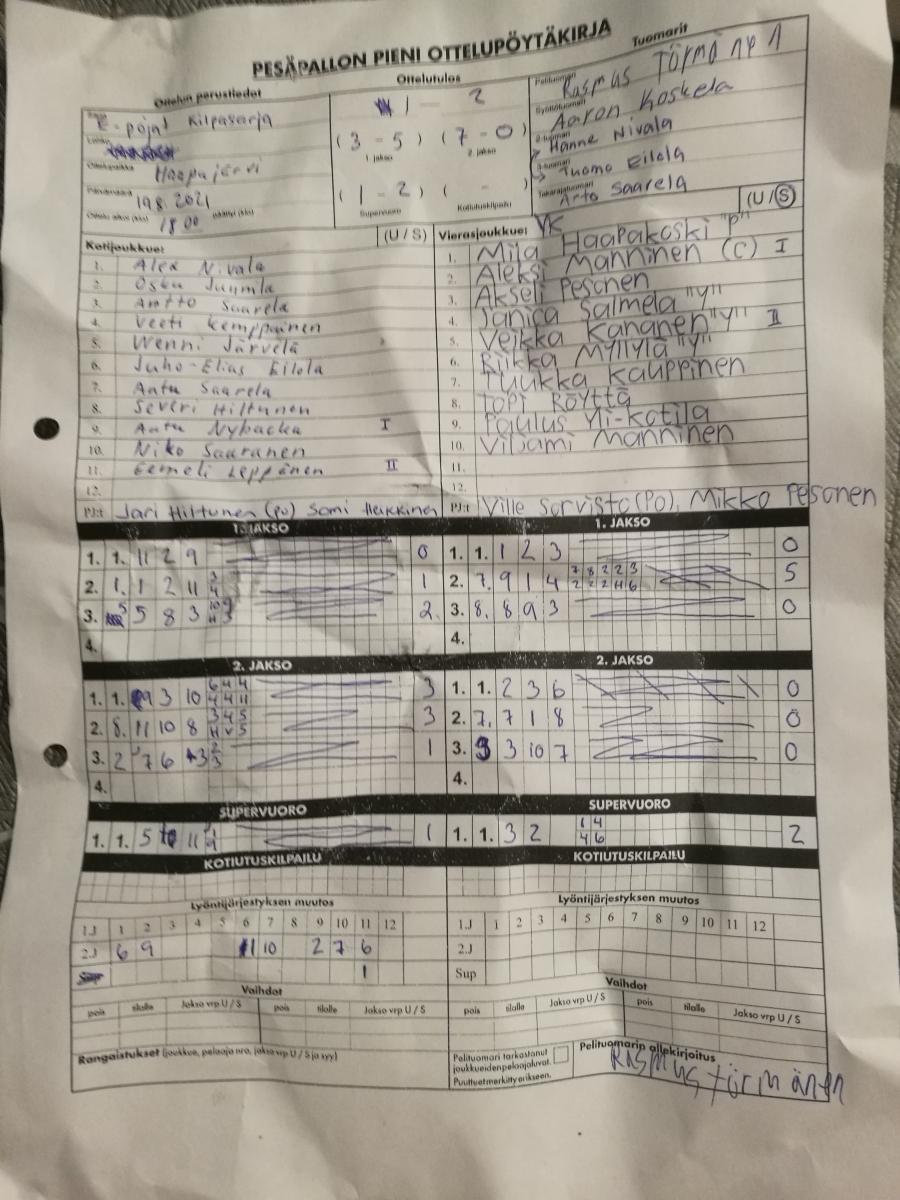 PESÄPALLON PIENI OTTELUPÖYTÄKIRJA
Tuomarit
Ottelun perustiedot
Ottelutulos
E-pojat Kilpasarja
Haapajärvi
19.8.2021
18.00
1 - 2
(3 - 5) (7 - 0)
1. jakso 2. jakso
(1 - 2) ( - )
Supervuoro Kotiutuskilpailu
Pelituomari
Rasmus
Aaron Koskela
Hanne Nivala
Tuomo Eilola
Takarajatuomari
Arto Saarela
Kotijoukkue: (U / S)
1. Alex Nivala
2. Osku Juumla
3. Antto Saarela
4. Veeti Kemppainen
5. Wenni Järvelä
6. Juho-Elias Eilola
7. Aatu Saarela
8. Severi Hiltunen
9. Aatu Nybacka I
10. Niko Saaranen
11. Eemeli Leppänen II
12.
PJ:t Jari Hiltunen (Po) Sami Heikkinen
Vierasjoukkue: YK (U / S)
1. Mila Haapakoski "P"
2. Aleksi Manninen (C) I
3. Akseli Pesonen
4. Janica Salmela "Y"
5. Veikka Kananen "Y" II
6. Riikka Myllylä "Y"
7. Tuukka Kauppinen
8. Topi Röyttä
9. Paulus Yli-Kotila
10. Viljami Manninen
11.
12.
PJ:t Ville Sorvisto (Po), Mikko Pesonen
1. JAKSO
1. 1. 11 2 9 0
2. 1. 1 2 11 1
3. 5 8 3 2
4.
1. JAKSO
1. 1. 1 2 3 0
2. 7. 9 1 4 7 8 2 2 3 5
2 2 2 H 6
3. 8. 8 9 3 0
4.
2. JAKSO
1. 1. 9 3 10 6 4 4 3
4 4 11
2. 8. 11 10 8 3 4 5 3
H V 5
3. 2 7 6 3 1
4.
2. JAKSO
1. 1. 2 3 6 0
2. 7. 7 1 8 0
3. 3 3 10 7 0
4.
SUPERVUORO
1. 1. 5 11 1
SUPERVUORO
1. 1. 3 2 1 4 2
4 6
KOTIUTUSKILPAILU
KOTIUTUSKILPAILU
Lyöntijärjestyksen muutos
1.J 1 2 3 4 5 6 7 8 9 10 11 12
2.J 6 9 11 10 2 7 6
Sup 1
Lyöntijärjestyksen muutos
1.J 1 2 3 4 5 6 7 8 9 10 11 12
2.J
Sup
Vaihdot
pois tilalle Jakso vrp U / S pois tilalle Jakso vrp U / S
Vaihdot
pois tilalle Jakso vrp U / S pois tilalle Jakso vrp U / S
Rangaistukset (joukkue, pelaaja nro, jakso vrp U / S ja syy)
Pelituomari tarkastanut
joukkueiden pelaajaluvat.
Puuttuvat merkitty erikseen.
Pelituomarin allekirjoitus
Rasmus Törmänen